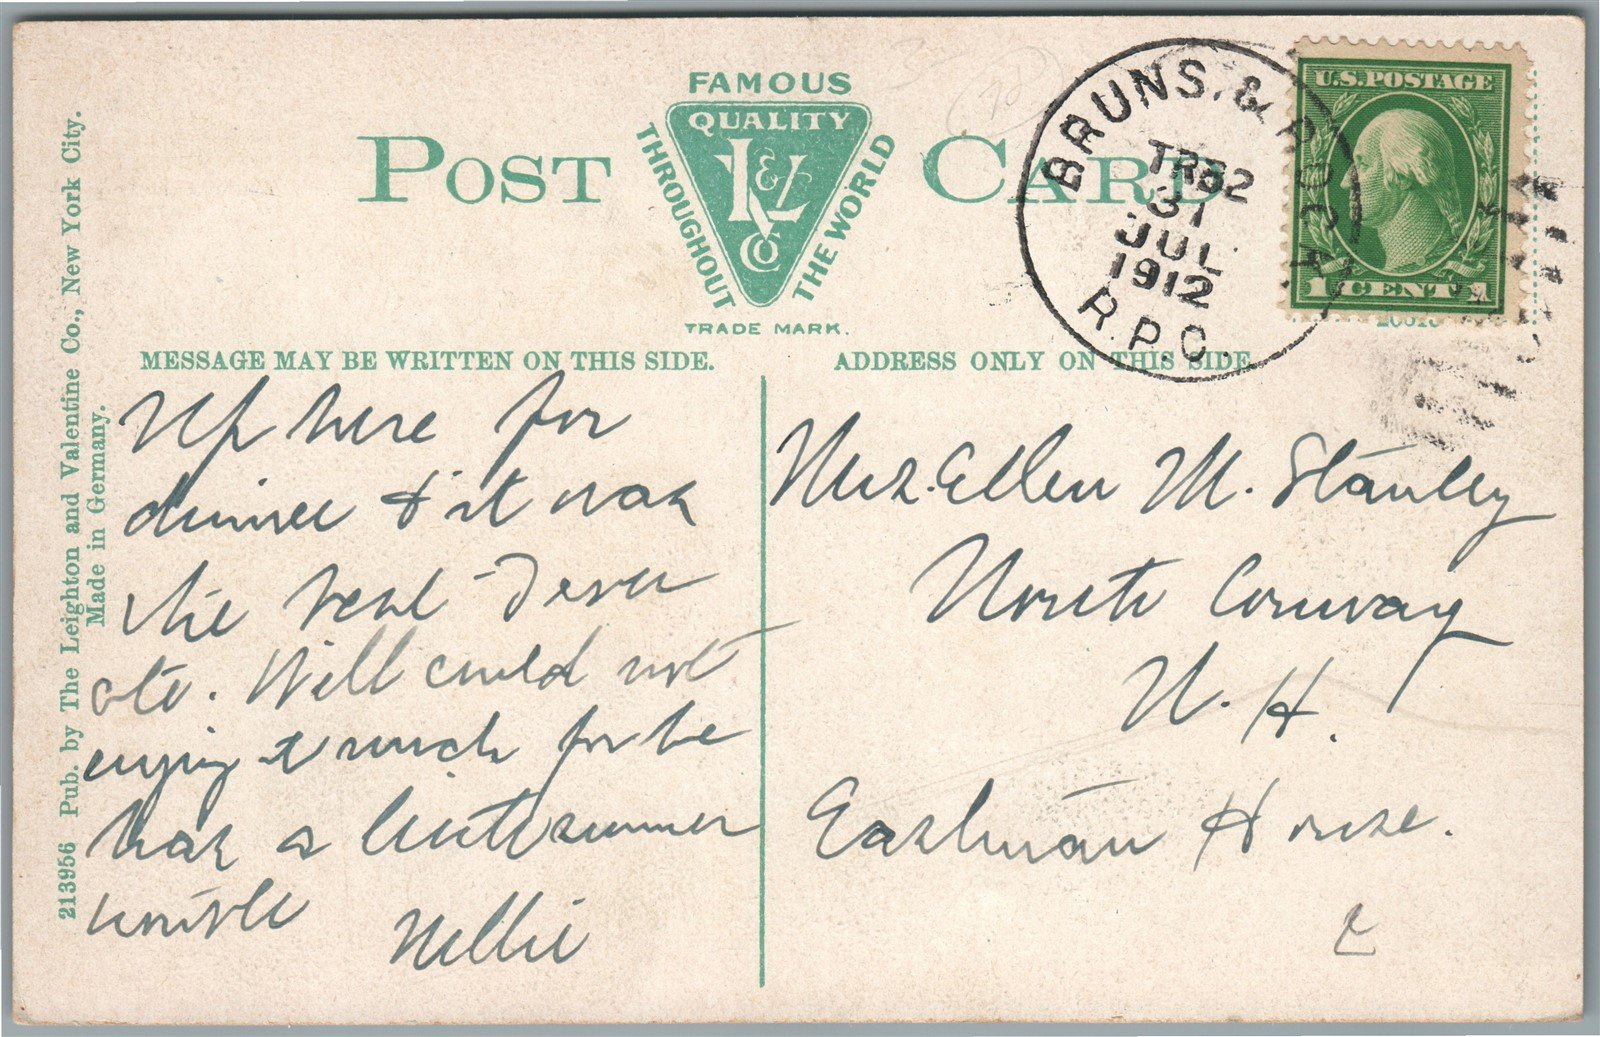 FAMOUS
QUALITY
L & V
Co
THROUGHOUT THE WORLD
TRADE MARK.
POST CARD
MESSAGE MAY BE WRITTEN ON THIS SIDE.
ADDRESS ONLY ON THIS SIDE
213956 Pub. by The Leighton and Valentine Co., New York City.
Made in Germany.
BRUNS. & ROCK.
TR 32
31
JUL
1912
R.P.O.
U.S. POSTAGE
1 CENT 1
Up here for
dinner & it was
the best I ever
ate. Will could not
enjoy it much for he
has a little summer
trouble
Nellie
Mrs. Ellen M. Stanley
North Conway
N. H.
Eastman House.